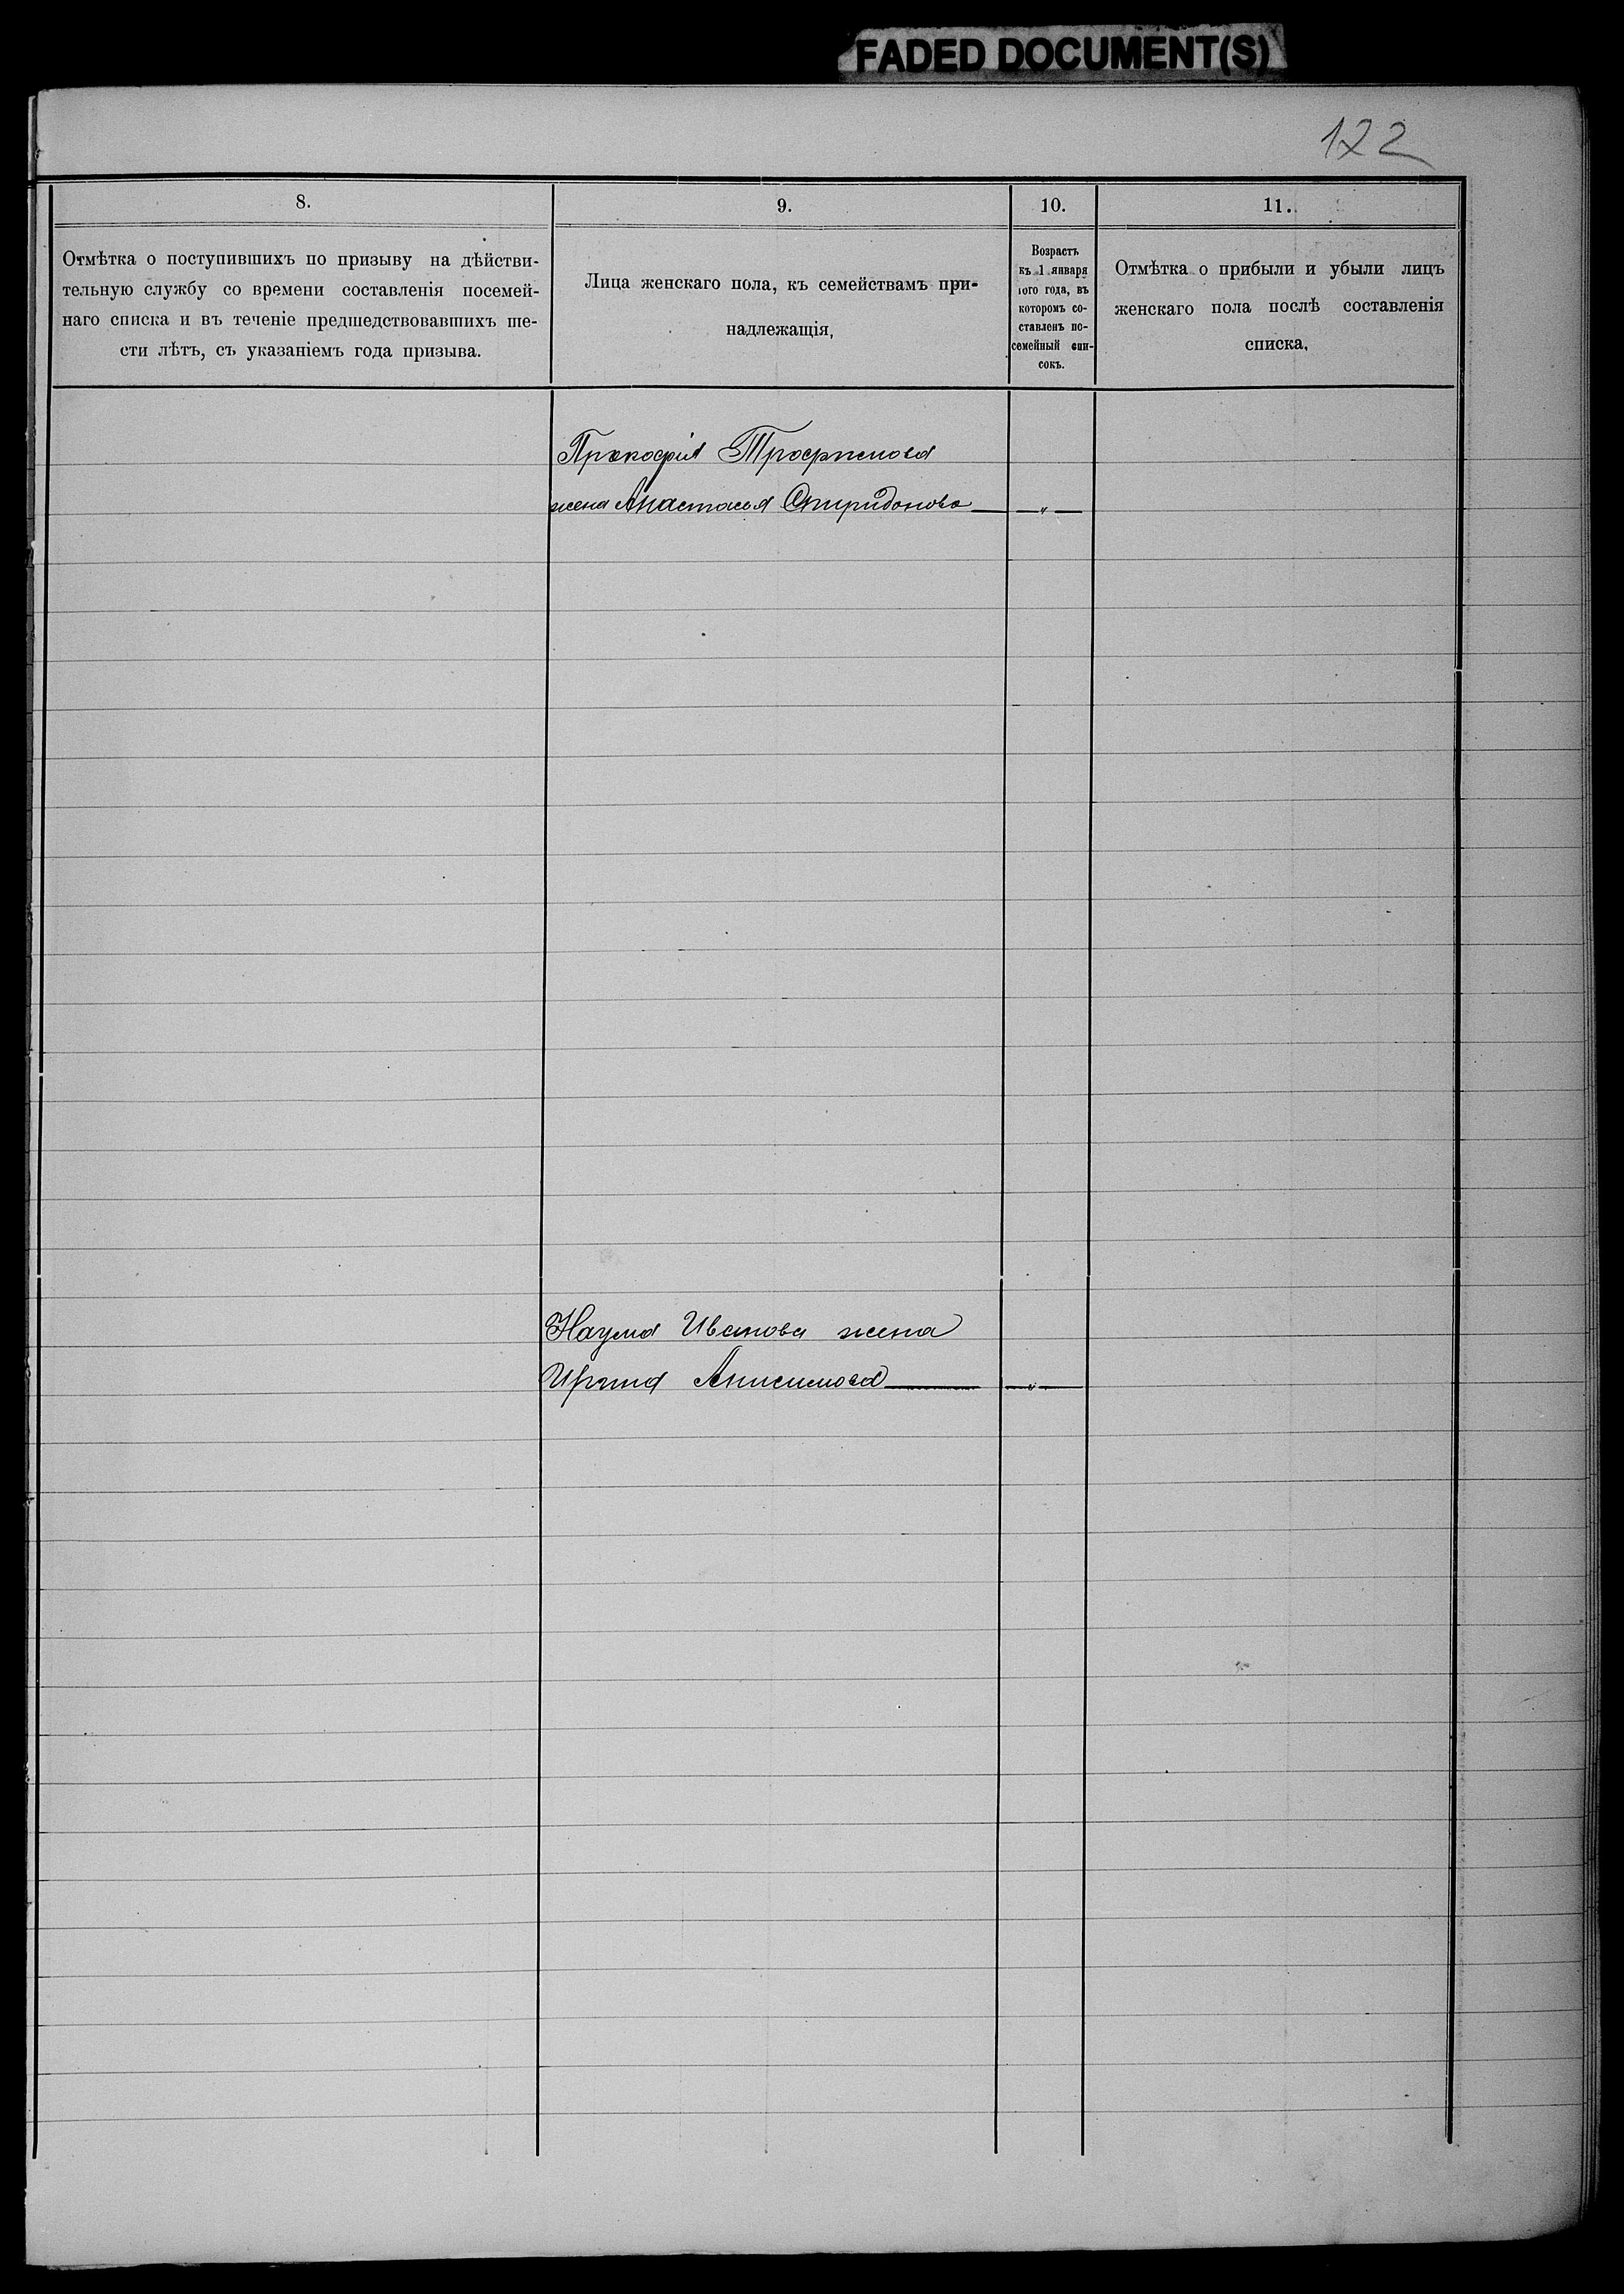 FADED DOCUMENT(S)
122
8.
Отмѣтка о поступившихъ по призыву на дѣйстви-
тельную службу со времени составленія посемей-
наго списка и въ теченіе предшедствовавшихъ ше-
сти лѣтъ, съ указаніемъ года призыва.
9.
Лица женскаго пола, къ семействамъ при-
надлежащія,
10.
Возрастъ
къ 1 января
того года, въ
которомъ со-
ставленъ по-
семейный спи-
сокъ.
11.
Отмѣтка о прибыли и убыли лицъ
женскаго пола послѣ составленія
списка,
Прокофія Трофимова
жена Анастасья Спиридонова — „ —
Наума Иванова жена
Анисимова — „ —